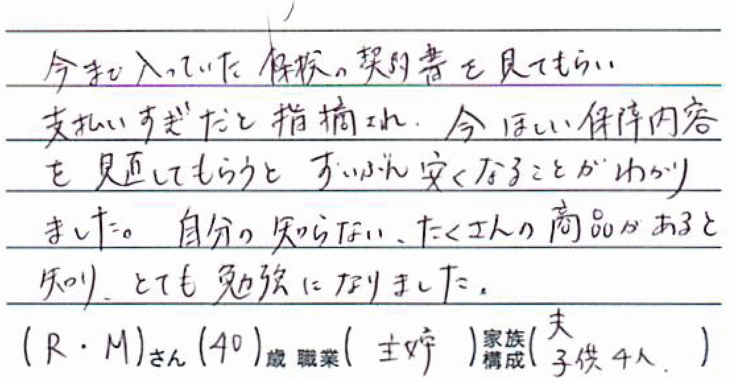 今まで入っていた保険の契約書を見てもらい
支払いすぎだと指摘され、今ほしい保障内容
を見直してもらうとずいぶん安くなることがわかり
ました。自分の知らない、たくさんの商品があると
知り、とても勉強になりました。
(R・M)さん(40)歳 職業(主婦)家族構成(夫 子供4人.)